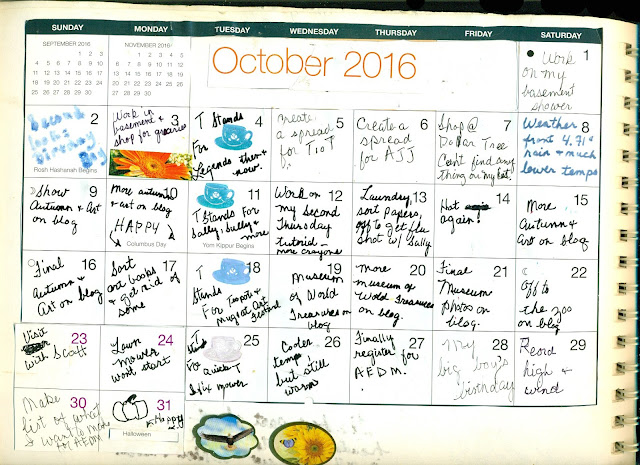 SUNDAY MONDAY TUESDAY WEDNESDAY THURSDAY FRIDAY SATURDAY
SEPTEMBER 2016
1 2 3
4 5 6 7 8 9 10
11 12 13 14 15 16 17
18 19 20 21 22 23 24
25 26 27 28 29 30
NOVEMBER 2016
1 2 3 4 5
6 7 8 9 10 11 12
13 14 15 16 17 18 19
20 21 22 23 24 25 26
27 28 29 30
October 2016
1
Work
on my
basement
shower
2
Second
Rosh Hashanah Begins
3
Work in
basement &
shop for groceries
4
T Stands
For
Legends then &
now.
5
Create
a spread
for TioT
6
Create a
spread
for AJJ
7
Shop @
Dollar Tree
Can't find any
thing on my list
8
Weather
front 4.91"
rain & much
lower temps
9
Show
Autumn & Art
on blog
10
More autumn
& art on blog
HAPPY
Columbus Day
11
T Stands For
Sally, Sully &
more
Yom Kippur Begins
12
Work on
my second
Thursday
tutorial –
more crayons
13
Laundry,
sort papers,
off to get flu
shot w/ Sally
14
Hot
again!
15
More
Autumn &
Art on blog
16
Final
Autumn &
Art on blog
17
Sort
art books
& get rid of
some
18
T
Stands
For Teapots &
Mugs at Art
Festival
19
Museum
of World
Treasures on
blog
20
More
museum of
World Treasures
on blog.
21
Final
Museum
photos on
blog.
22
Off to
the zoo
on blog
23
Visit
with Scott
24
Lawn
mower
won't start
25
T
For quick
& fix mower
26
Cooler
temps
but still
warm
27
Finally
register for
AEDM.
28
My
big boy's
birthday
29
Record
high &
wind
30
Make
list of what
I want to make
for AEDM
31
Happy
Halloween